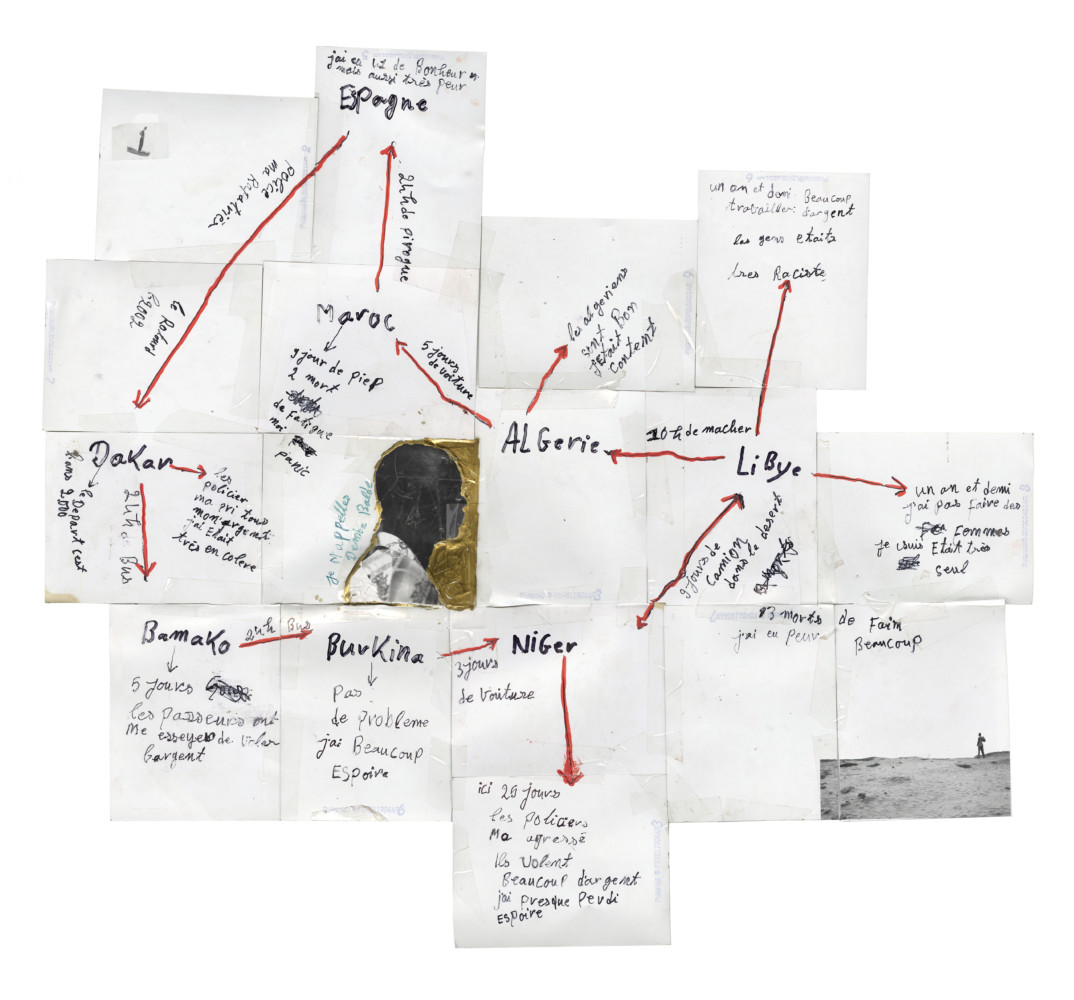 jai eu
de Bonheur
mais aussi très peur
ESPagne
1
police
ma Rapatriér
2h h de pirogue
un an et demi Beaucoup
travailler d'argent
les gens etaits
tres Raciste
le Retours
2002
Maroc
9 jour de pieP
2 mort
de Fatigue
moi
panic
5 jours
de voiture
les algeriens
sont Bon
j'Etait
Contemt
ALGerie
10 h de macher
LiBye
un an et demi
j'ai pas Faire des
Femmes
je suis Etait très
seul
Dakar
le Depart c'est
dans
2000
24h de Bus
les
policier
ma pri tous
mon argent
j'ai Etait
très en colere
je M'appelles
Demba Balde
9 jours de
CamiON
dans le desert
13 morts de Faim
j'ai eu Peur Beaucoup
Bamako
24h Bus
5 jours
les passeurs ont
Me essayer de Voler
l'argent
Burkina
Pas
de probleme
j'ai Beaucoup
ESpoire
3 jours
de Voiture
NiGer
ici 20 jours
les Policiers
Ma agressé
ils Volent
Beaucoup d'argent
j'ai presque Perdi
ESPoire